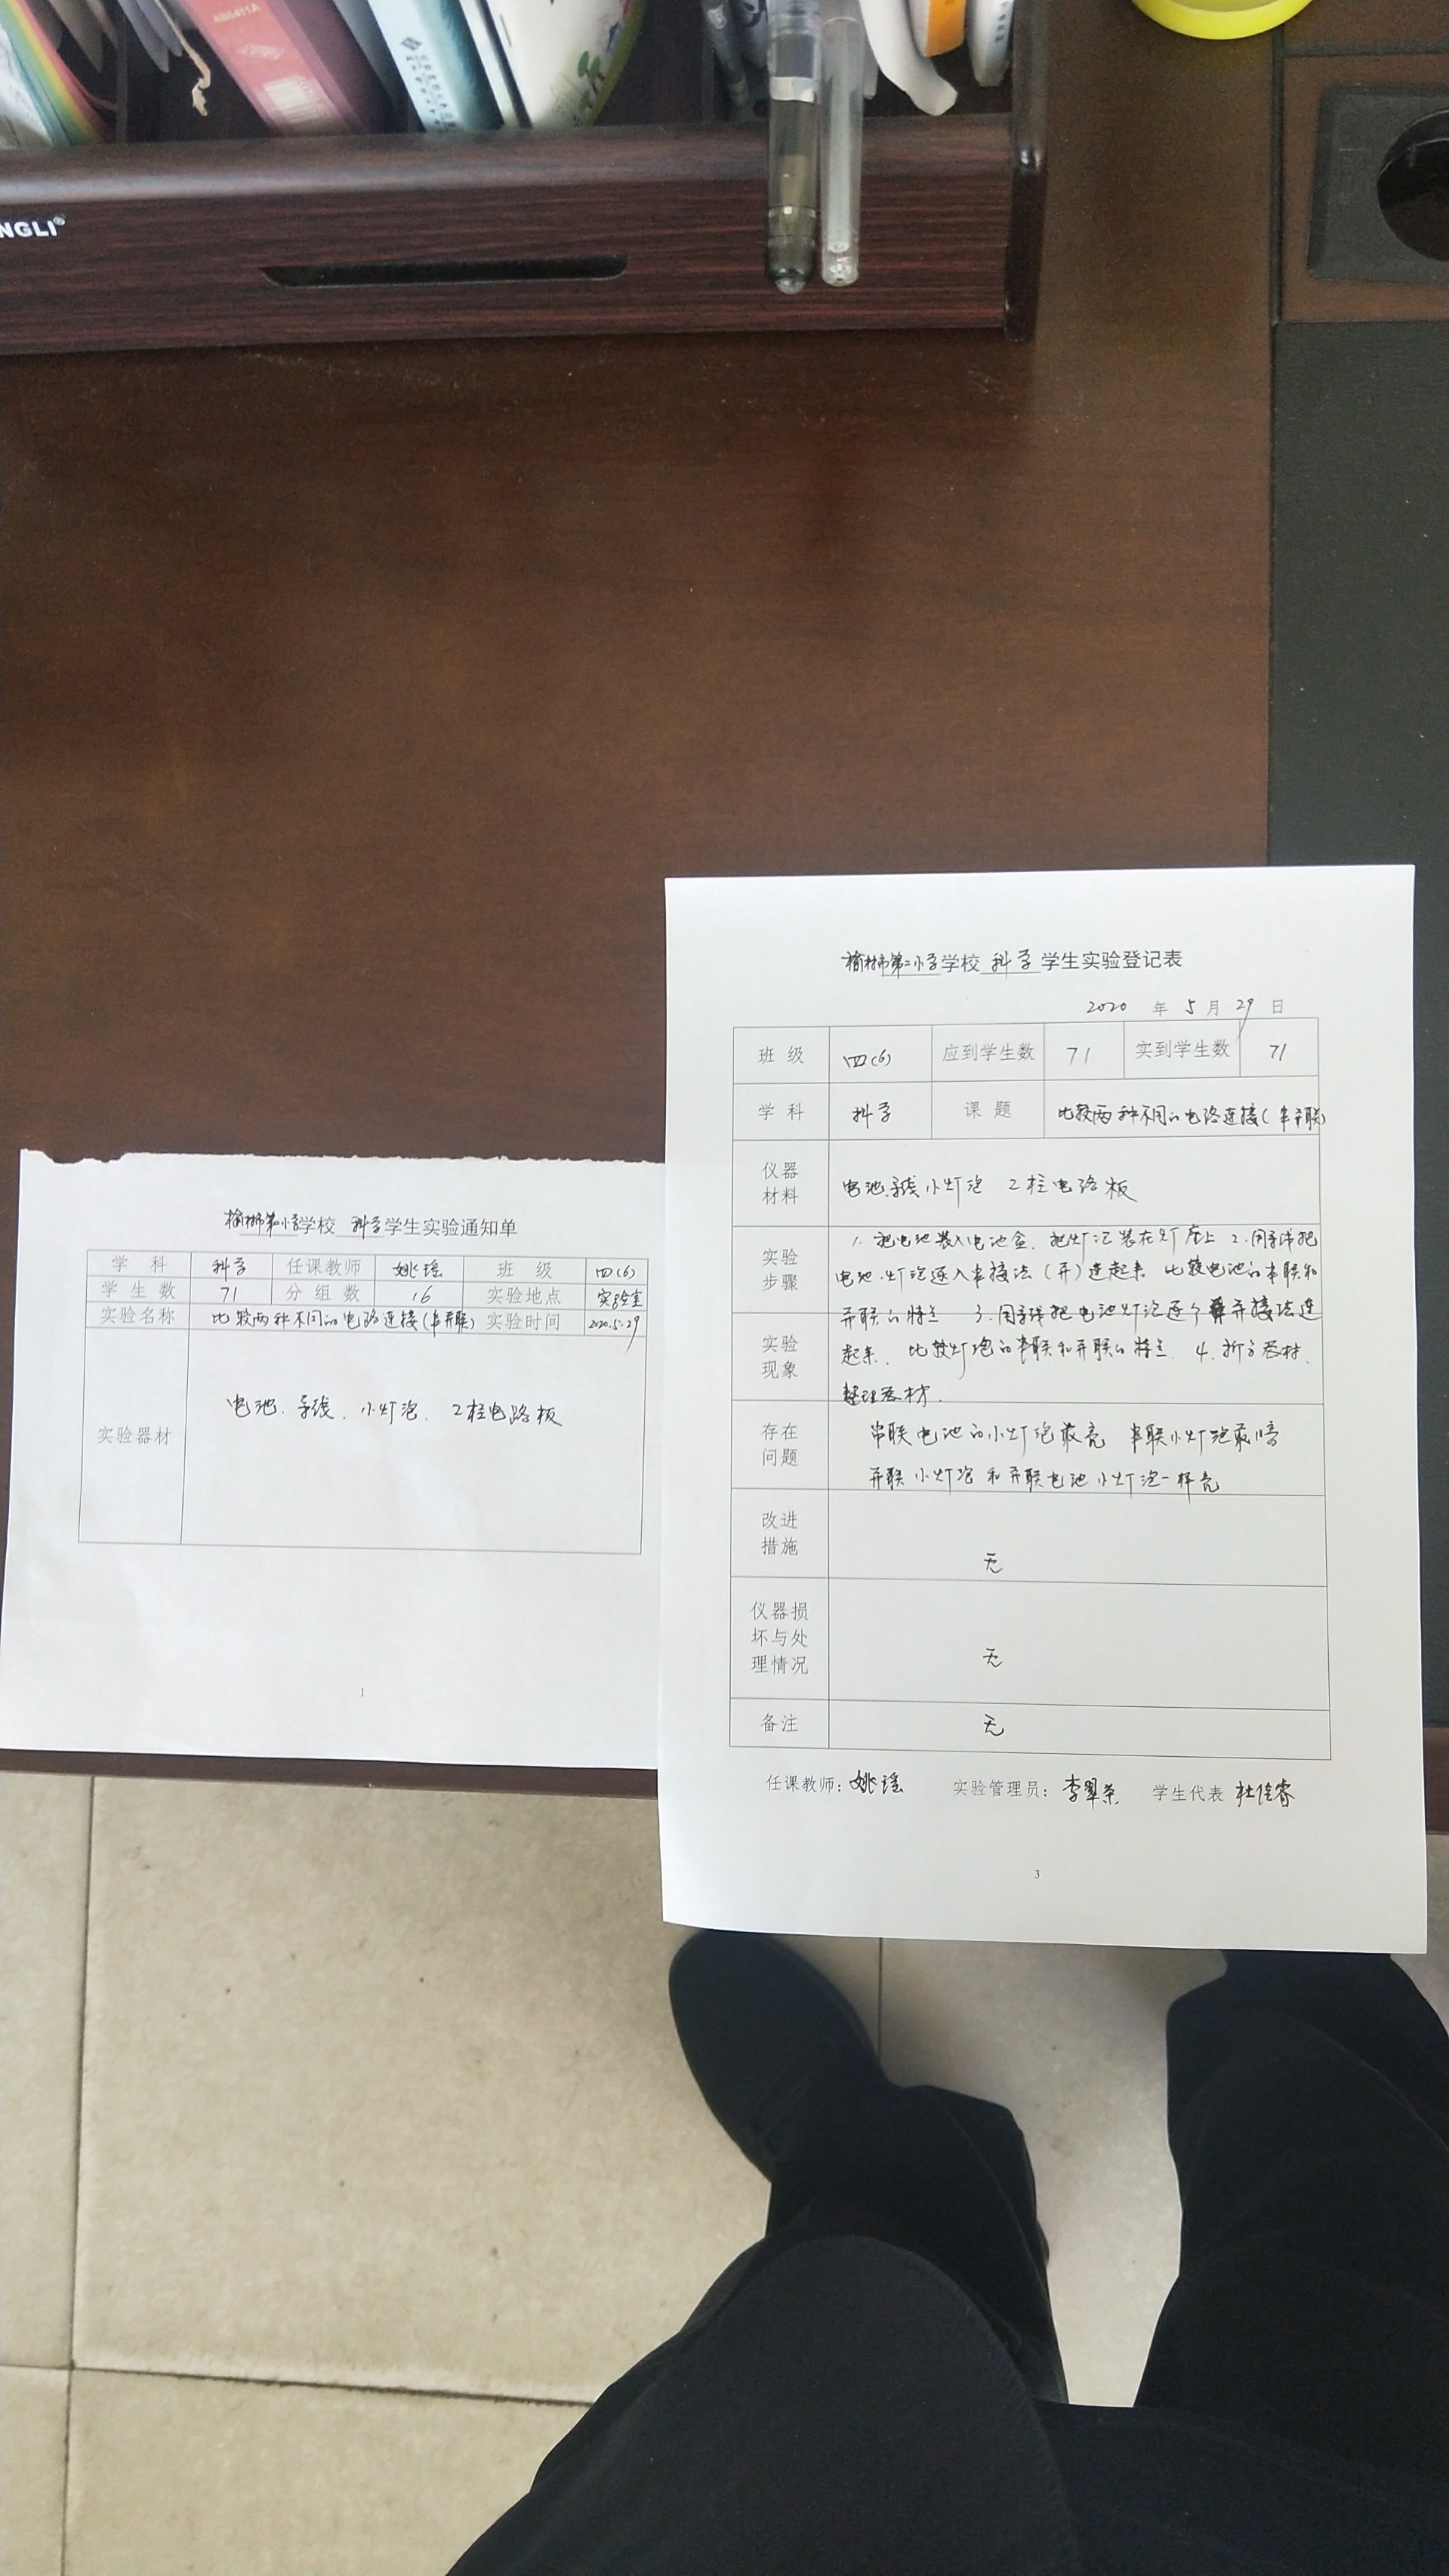 AB5411A
NGLI®
榆林市第二小学学校 科学 学生实验通知单
学科 科学 任课教师 姚瑶 班级 四(6)
学生数 71 分组数 16 实验地点 实验室
实验名称 比较两种不同的电路连接(串并联) 实验时间 2020.5.29
实验器材 电池、导线、小灯泡、2柱电路板
1
榆林市第二小学学校 科学 学生实验登记表
2020 年 5 月 29 日
班级 四(6) 应到学生数 71 实到学生数 71
学科 科学 课题 比较两种不同的电路连接(串并联)
仪器材料 电池 导线 小灯泡 2柱电路板
实验步骤
1. 把电池装入电池盒, 把灯泡装在灯座上 2. 用导线把
电池、灯泡逐入串接法(并)连起来 比较电池的串联和
并联的特点 3. 用导线把电池灯泡逐个并接法连
实验现象
起来, 比较灯泡的串联和并联的特点 4. 拆分器材,
整理器材.
存在问题
串联电池的小灯泡最亮 串联小灯泡最暗
并联小灯泡和并联电池小灯泡一样亮
改进措施 无
仪器损坏与处理情况 无
备注 无
任课教师: 姚瑶 实验管理员: 李翠荣 学生代表 杜佳睿
3